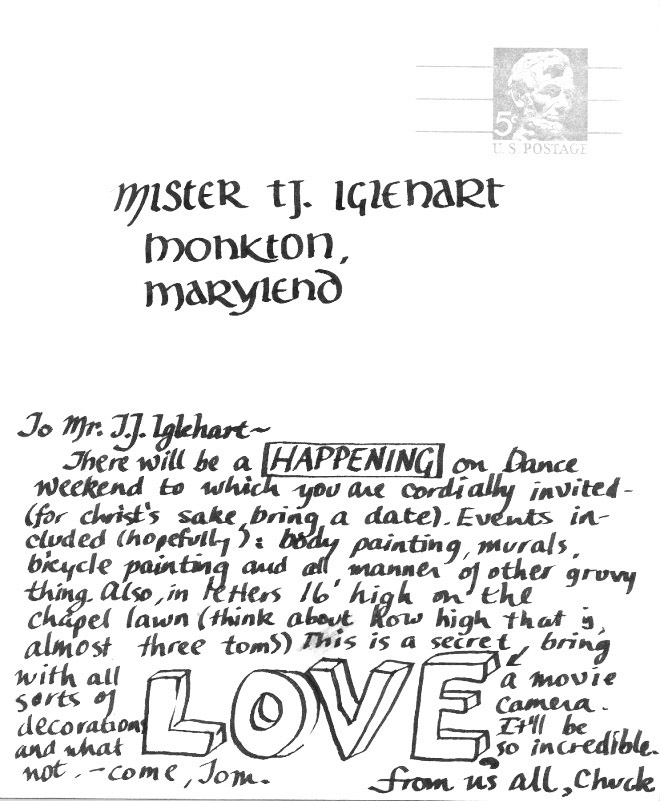 5¢
U.S. POSTAGE
MISTER TJ. IGLEHART
MONKTON,
MARYLEND
To Mr. T.J. Iglehart~
There will be a HAPPENING on Dance
weekend to which you are cordially invited-
(for christ's sake, bring a date). Events in-
cluded (hopefully): body painting, murals,
bicycle painting and all manner of other gruvy
thing. Also, in letters 16' high on the
chapel lawn (think about how high that is,
almost three toms)) This is a secret, bring
with all
sorts of
decorations
and what
not. -come, Tom.
LOVE
a movie
camera.
It'll be
so incredible.
from us all, Chuck